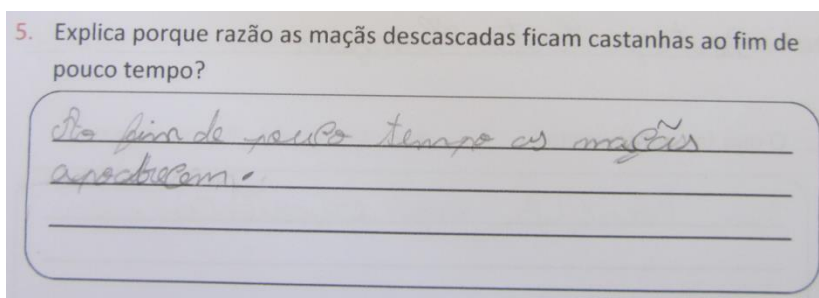 5. Explica porque razão as maçãs descascadas ficam castanhas ao fim de
pouco tempo?
Ao fim de pouco tempo as maçãs
apodrecem.